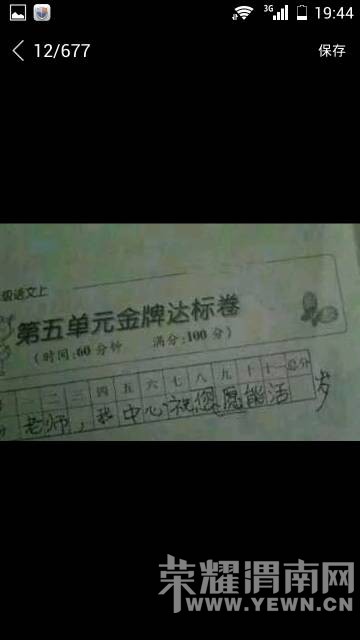 3G 19:44
12/677
保存
级语文上
第五单元金牌达标卷
(时间:60分钟 满分:100分)
一 二 三 四 五 六 七 八 九 十 十一 总分
老师,我中心祝您愿能活 岁
荣耀渭南网
WWW.YEWN.CN